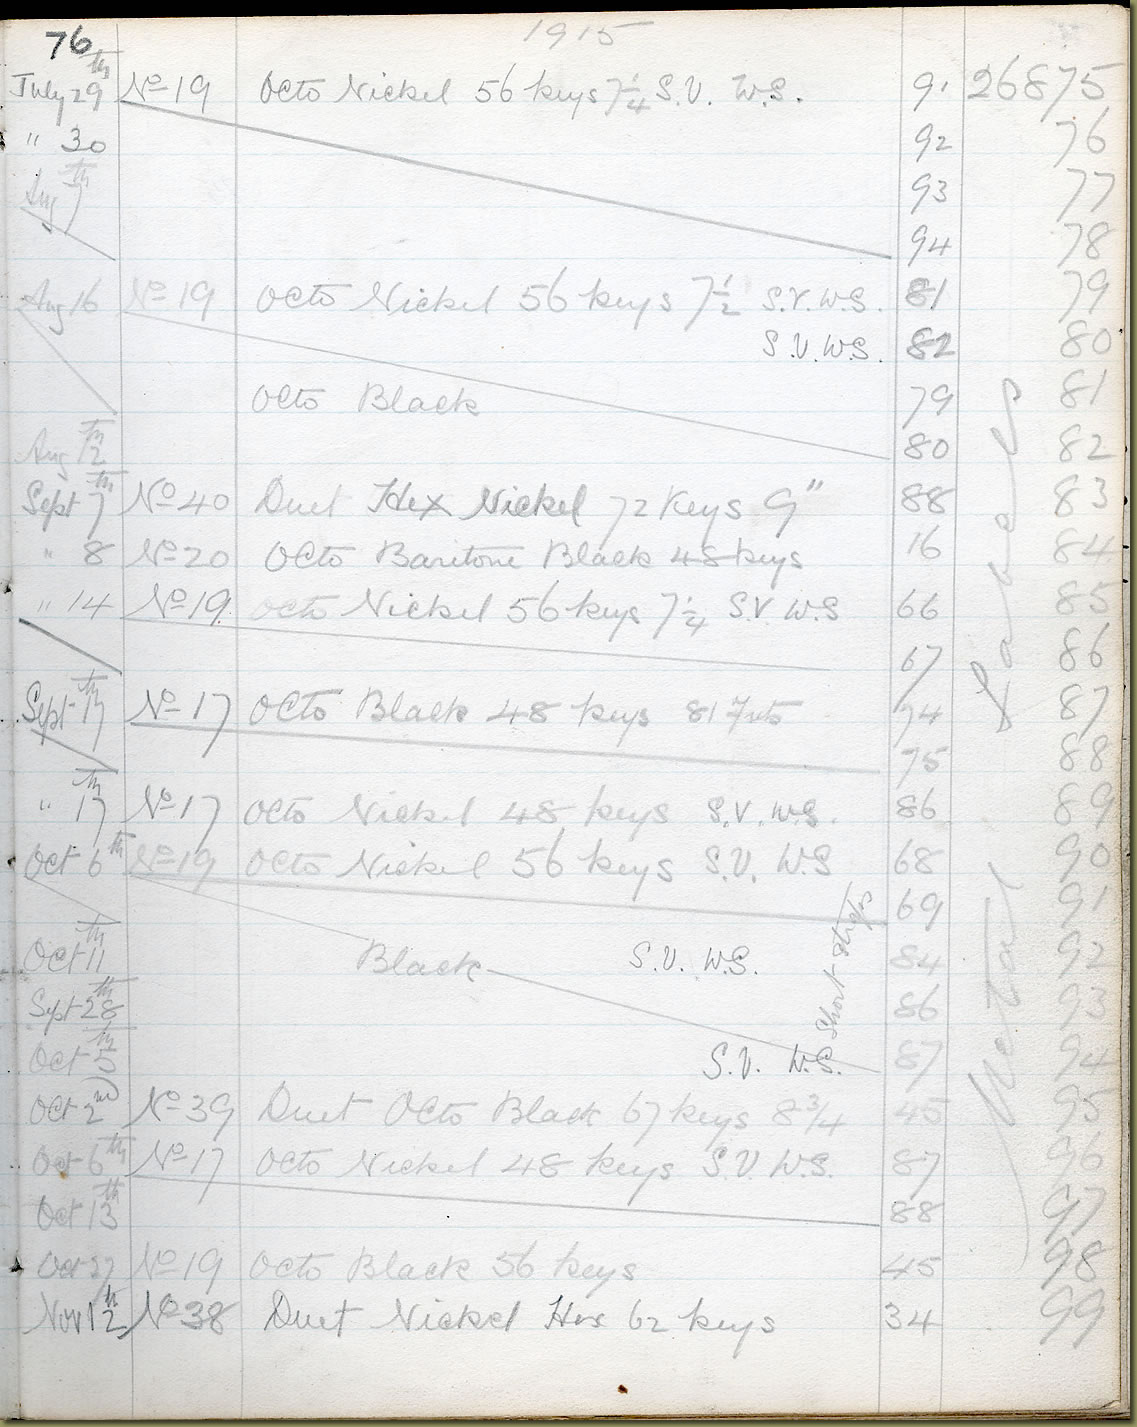 76 1915
July 29th No 19 Octo Nickel 56 keys 7¼ S.V. W.S. 91 26875
" 30 92 76
Aug 7th 93 77
94 78
Aug 16 No 19 Octo Nickel 56 keys 7½ S.V. W.S. 81 79
S.V. W.S. 82 80
Octo Black 79 81
Aug 12th 80 82
Sept 7th No 40 Duet Hex Nickel 72 Keys 9" 88 83
" 8 No 20 Octo Baritone Black 48 keys 16 84
" 14 No 19. Octo Nickel 56 keys 7¼ S.V W.S 66 85
67 86
Sept 17th No 17 Octo Black 48 keys 81 74 87
75 88
" 17th No 17 Octo Nickel 48 keys S.V. W.S. 86 89
Oct 6th No 19 Octo Nickel 56 keys S.V. W.S 68 90
69 91
Oct 11th Black S.V. W.S. 84 92
Sept 28th 86 93
Oct 5th S.V. W.S. 87 94
Oct 2nd No 39 Duet Octo Black 67 keys 8¾ 45 95
Oct 6th No 17 Octo Nickel 48 keys S.V. W.S. 87 96
Oct 13th 88 97
Oct 27 No 19 Octo Black 56 keys 45 98
Nov 12th No 38 Duet Nickel Hex 62 keys 34 99
Short Straps
Metal